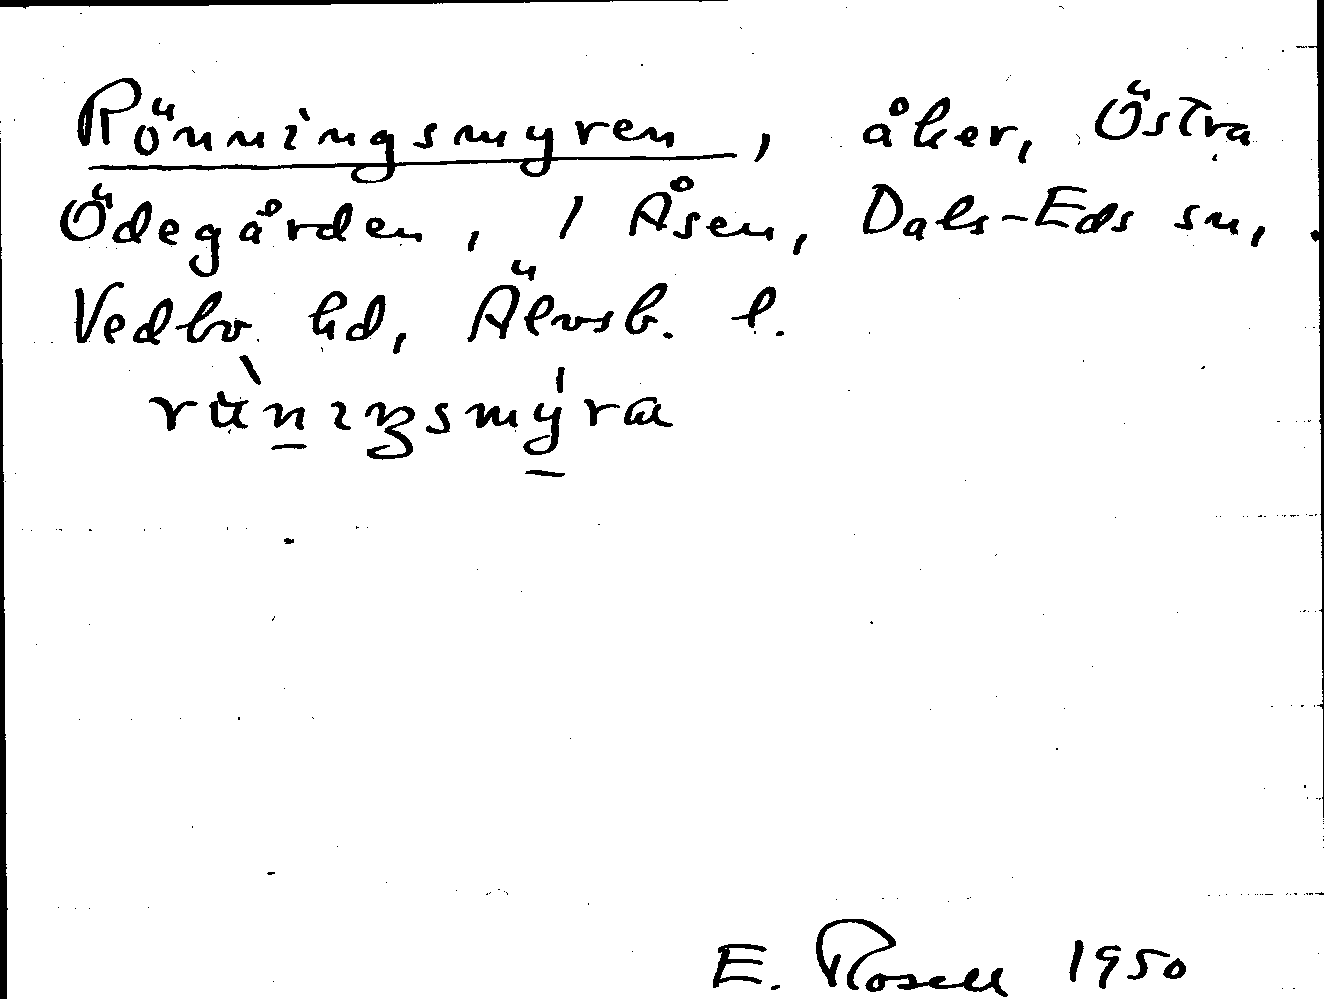 Rönningsmyren, åker, Östra
Ödegården, 1 Åsen, Dals-Eds sn,
Vedbo hd, Älvsb. l.
E. Rosell 1950